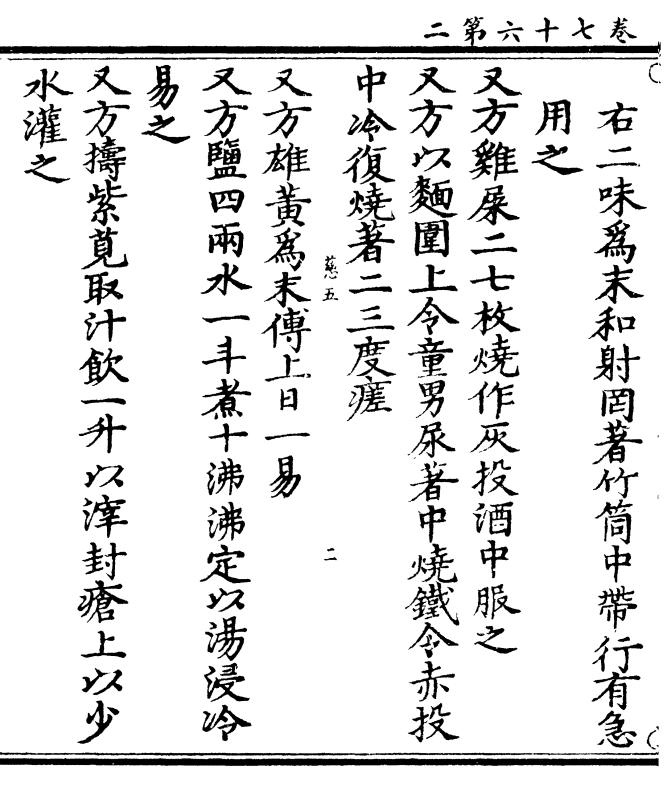 卷七十六第二
右二味爲末和射罔著竹筒中帶行有急
用之
又方雞屎二七枚燒作灰投酒中服之
又方以麵圍上令童男尿著中燒鐵令赤投
中冷復燒著二三度瘥
慈五
二
又方雄黃爲末傅上日一易
又方鹽四兩水一斗煮十沸沸定以湯浸冷
易之
又方擣紫莧取汁飲一升以滓封瘡上以少
水灌之